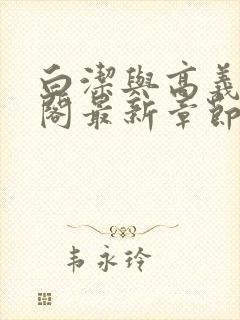 白潔與高義
閣最新章節
韦永玲